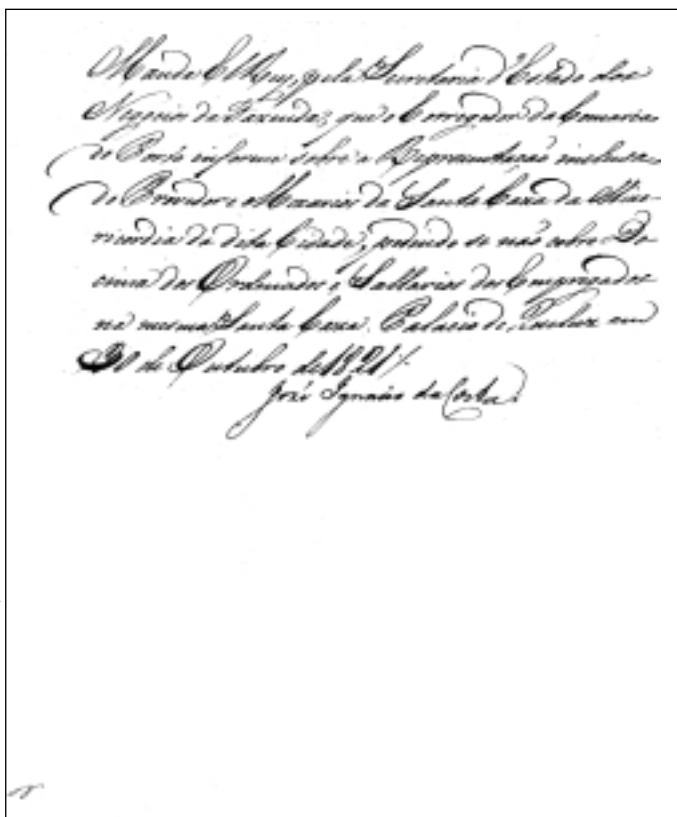 Manda ElRey, pela Secretaria d'Estado dos
Negocios da Fazenda, que o Corregedor da Comarca
do Porto informe sobre a Representação inclusa
do Provedor e Mezarios da Santa Caza da Mise-
ricordia da dita Cidade, pedindo se não cobre De-
cima dos Ordenados e Sallarios dos Empregados
na mesma Santa Caza. Palacio de Queluz em
30 de Outubro de 1821
José Ignacio da Costa